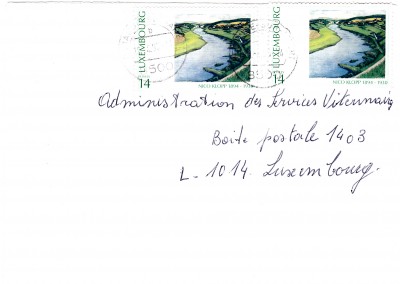 LUXEMBOURG
14
NICO KLOPP 1894 - 1930
LUXEMBOURG
14
NICO KLOPP 1894 - 1930
Administration des Services Vétérinaires
Boîte postale 1403
L-1014 Luxembourg.